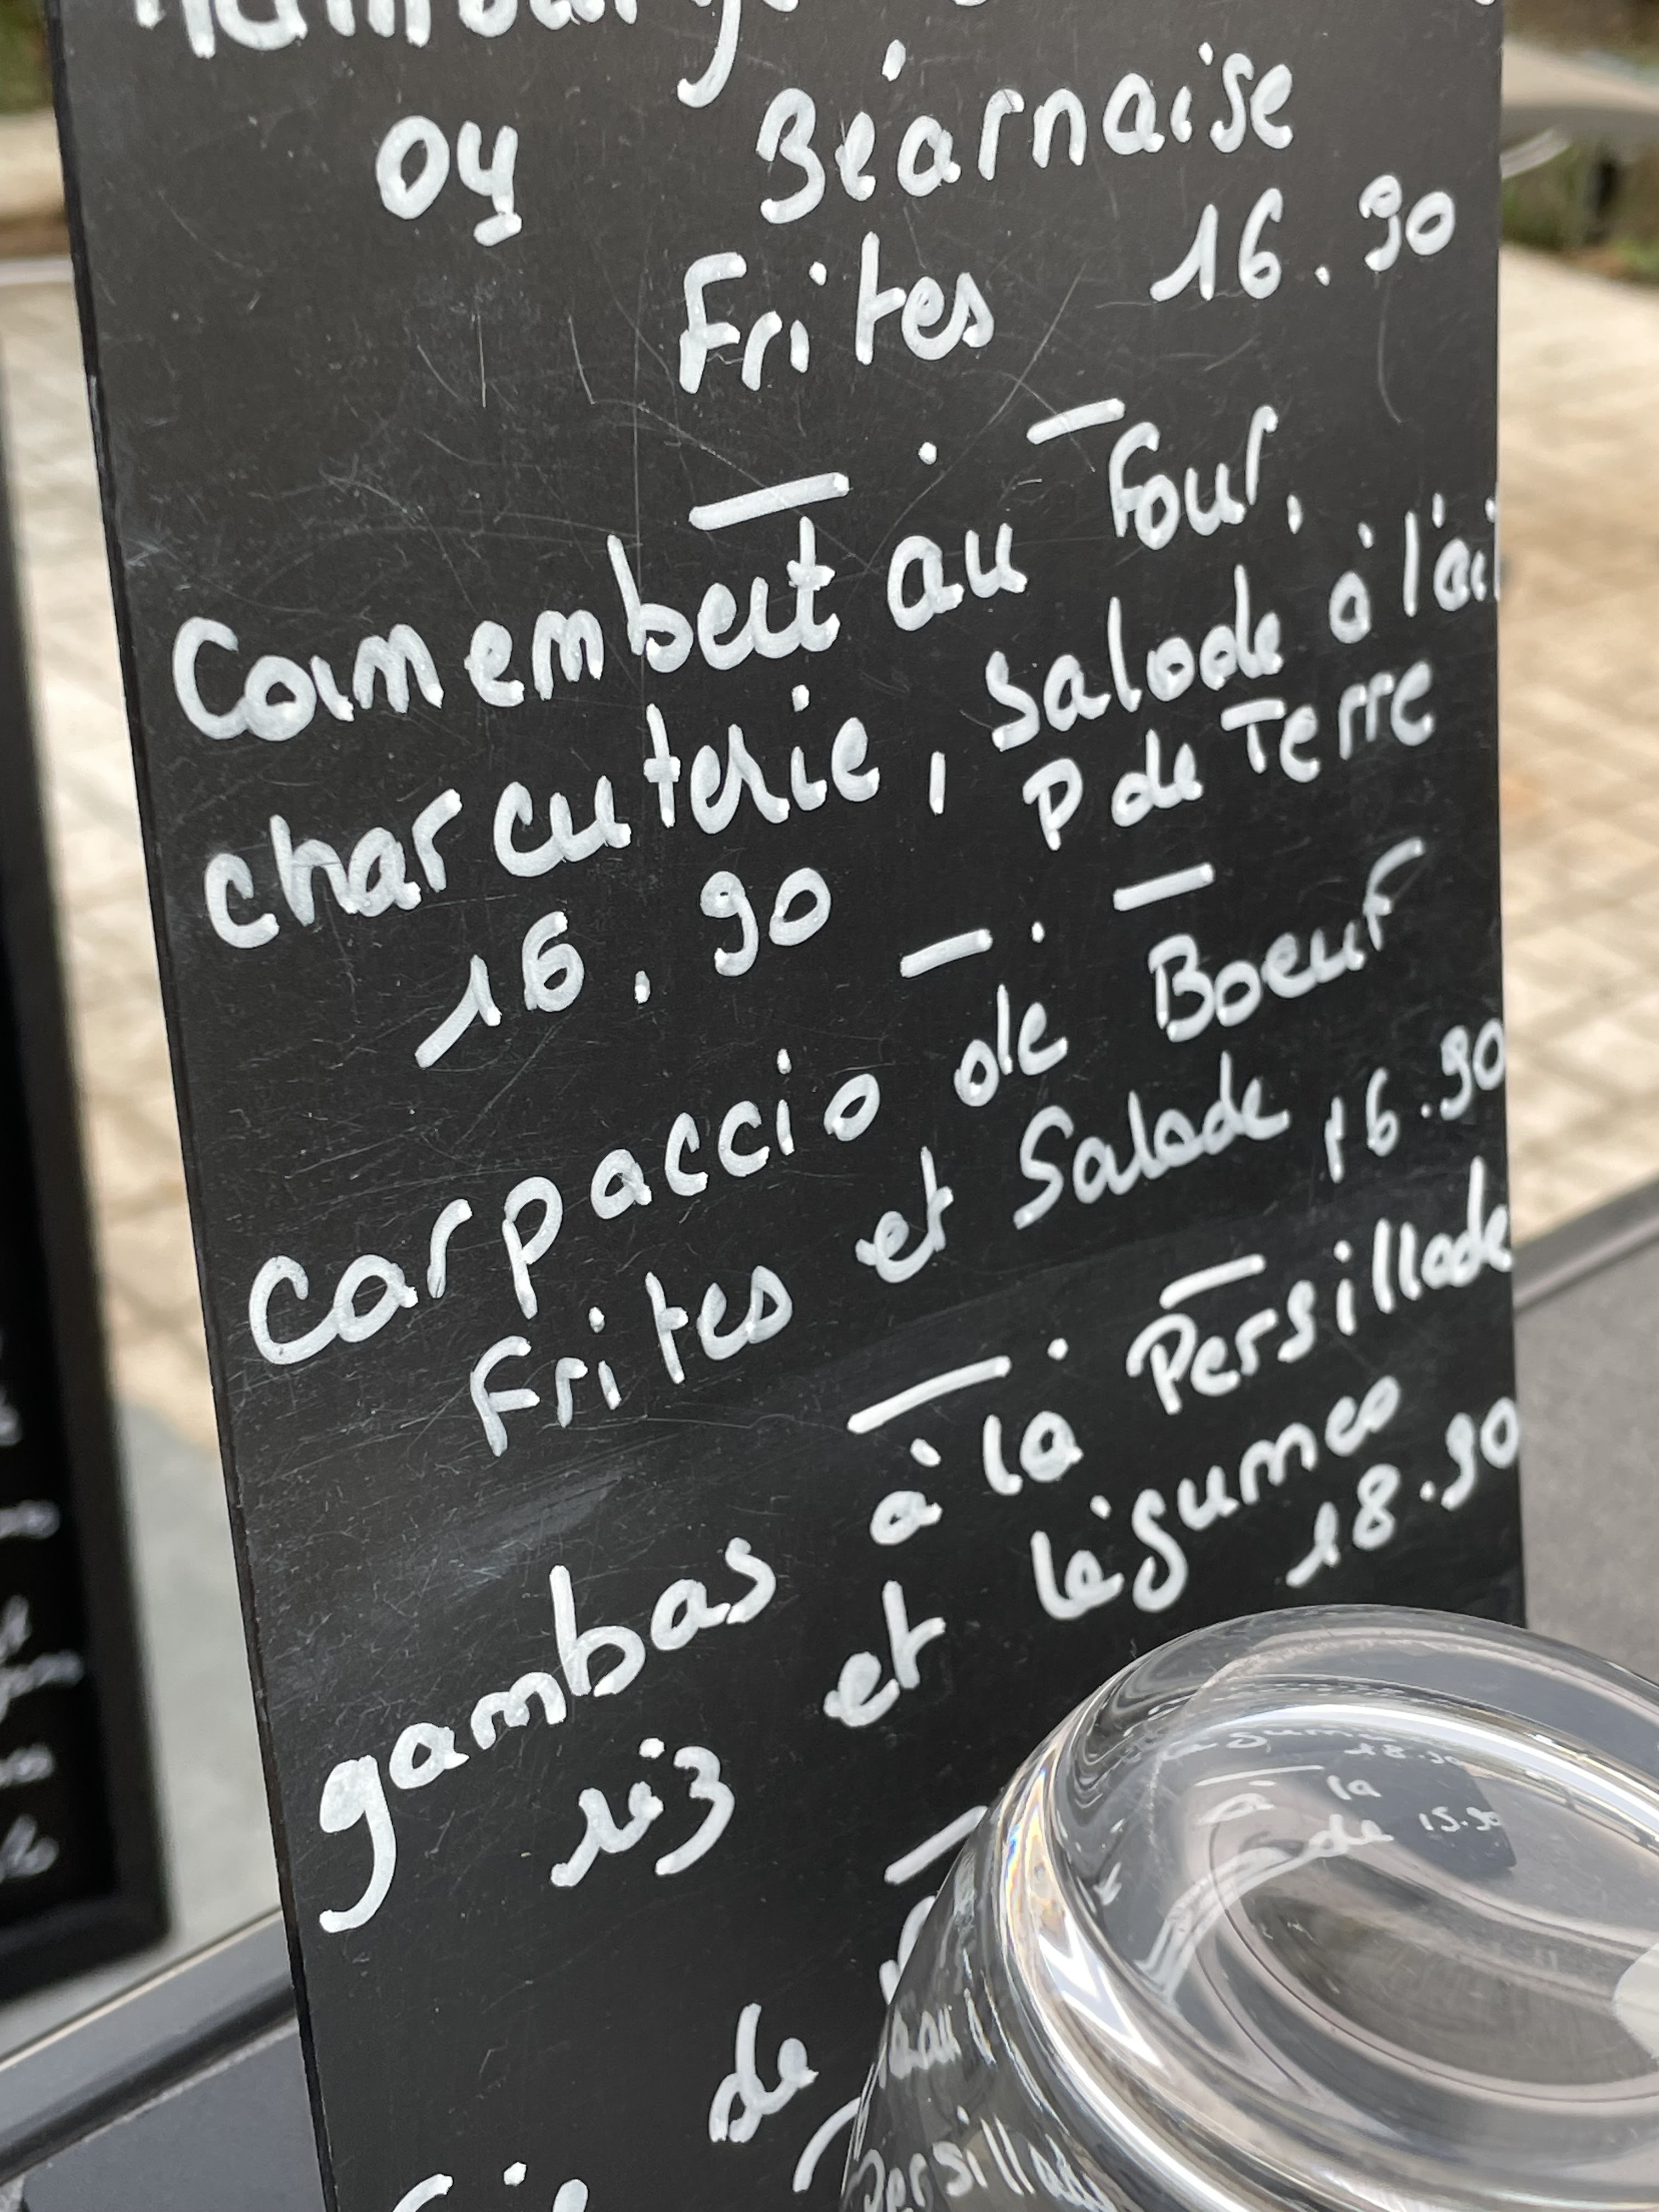 ou Béarnaise
Frites 16.90
Camembert au Four,
charcuterie, Salade à l'ail
P de Terre
16.90
Carpaccio de Boeuf
Frites et Salade 16.90
gambas à la Persillade
riz et légumes
18.90
de
Persillade
à la
de 15.90